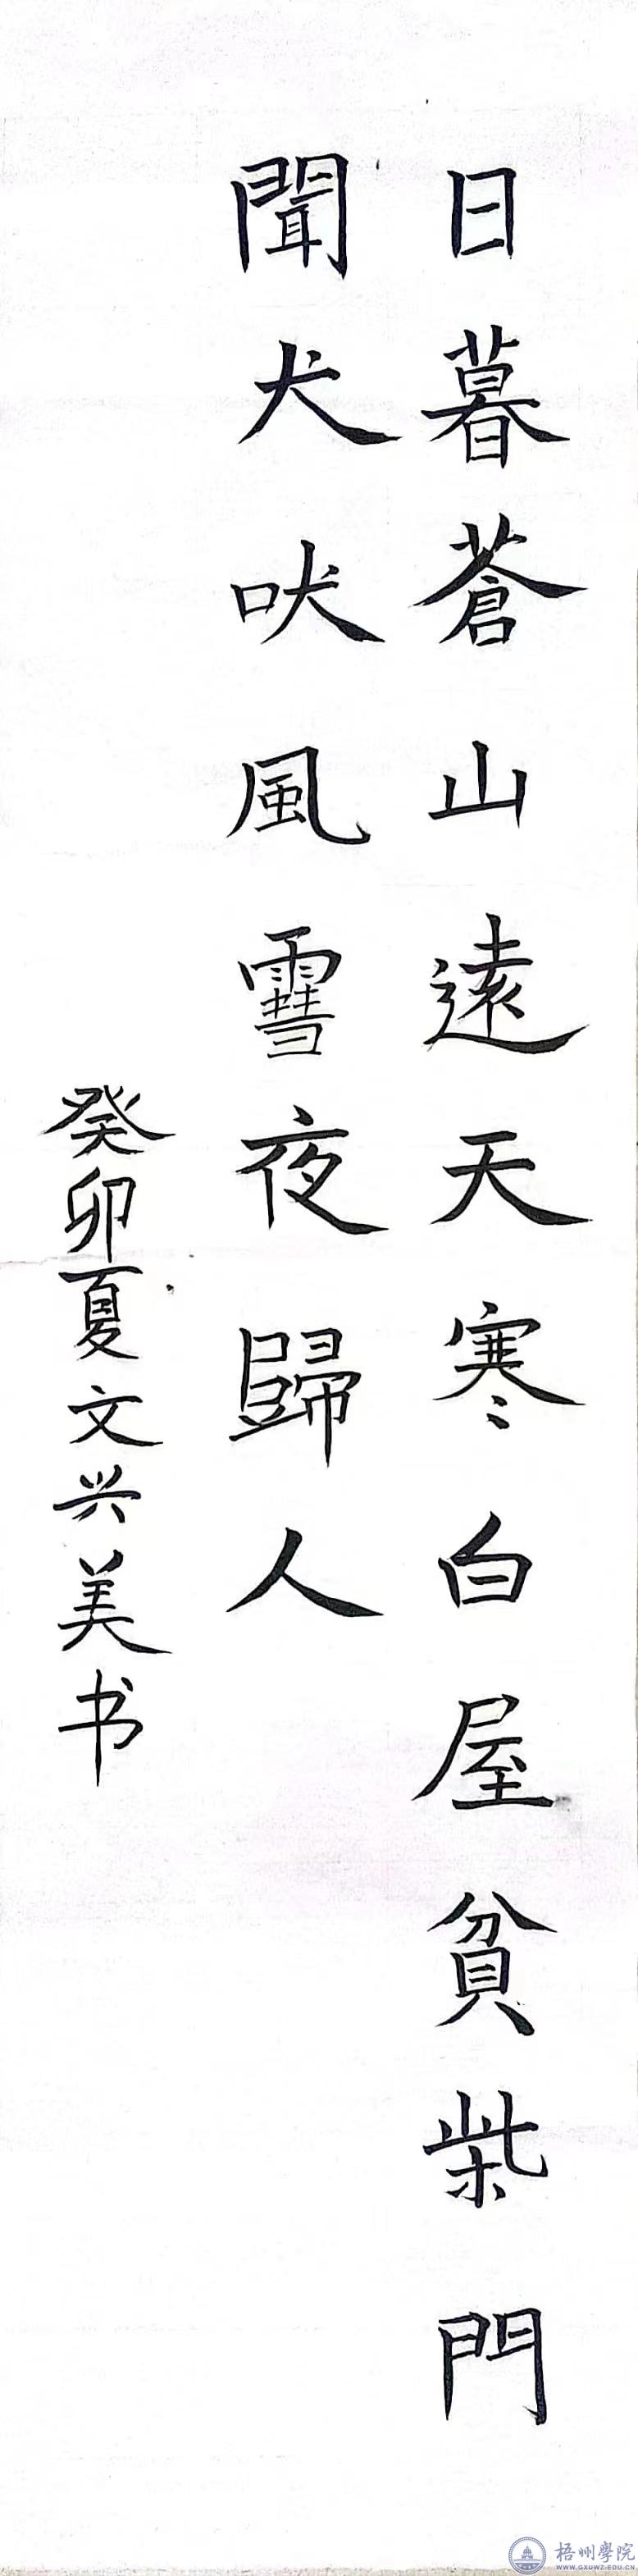 日暮蒼山遠天寒白屋貧柴門
聞犬吠風雪夜歸人
癸卯夏文兴美书
梧州學院
WWW.GXUWZ.EDU.CN